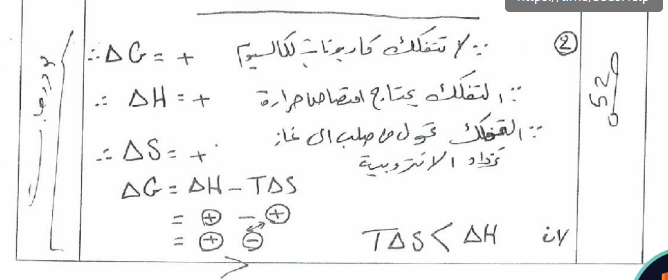 ② ∵ لا تتفكك كاربونات الكالسيوم ∴ ΔG = +
∵ التفكك يحتاج امتصاص حرارة ∴ ΔH = +
∵ التفكك تحول من صلب الى غاز ∴ ΔS = +
تزداد الانتروبية
ΔG = ΔH − TΔS
= ⊕ − ⊕
= ⊕ ⊖ لان TΔS < ΔH
52